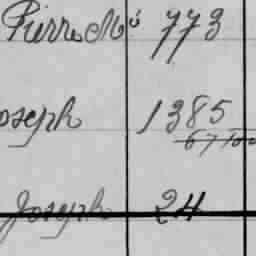 Pierre Mc 773
oseph 1385
Joseph 24